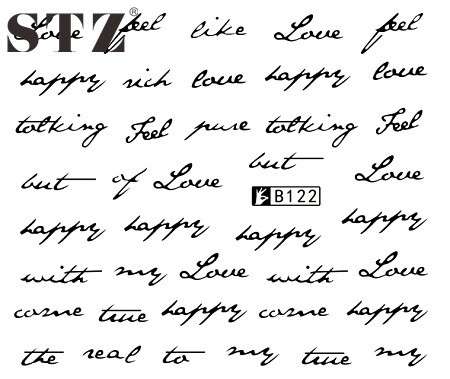 STZ®
Love feel like Love feel
happy rich love happy love
talking Feel pure talking Feel
but of Love but Love
B122
happy happy happy happy
with my Love with Love
come true happy come happy
the real to my true my